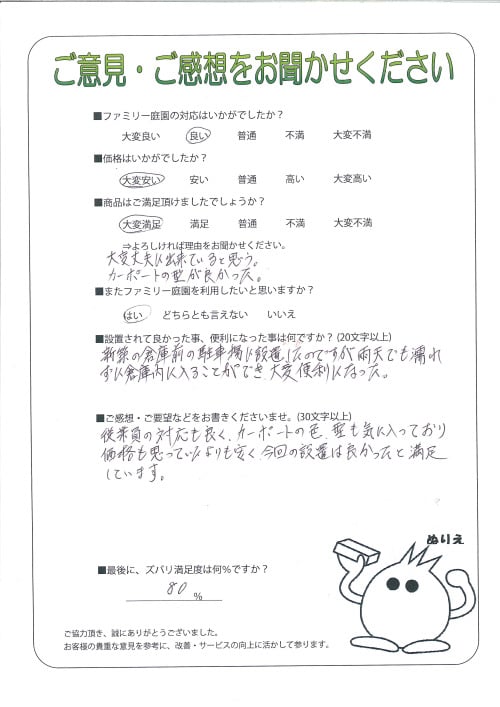 ご意見・ご感想をお聞かせください
■ファミリー庭園の対応はいかがでしたか？
大変良い 良い 普通 不満 大変不満
■価格はいかがでしたか？
大変安い 安い 普通 高い 大変高い
■商品はご満足頂けましたでしょうか？
大変満足 満足 普通 不満 大変不満
⇒よろしければ理由をお聞かせください。
大変丈夫に出来ていると思う。
カーポートの型が良かった。
■またファミリー庭園を利用したいと思いますか？
はい どちらとも言えない いいえ
■設置されて良かった事、便利になった事は何ですか？(20文字以上)
新築の倉庫前の駐車場に設置したのですが雨天でも濡れ
ずに倉庫内に入ることができ、大変便利になった。
■ご感想・ご要望などをお書きくださいませ。(30文字以上)
従業員の対応も良く、カーポートの色、型も気に入っており
価格も思っていたよりも安く、今回の設置は良かったと満足
しています。
ぬりえ
■最後に、ズバリ満足度は何％ですか？
80 %
ご協力頂き、誠にありがとうございました。
お客様の貴重な意見を参考に、改善・サービスの向上に活かして参ります。